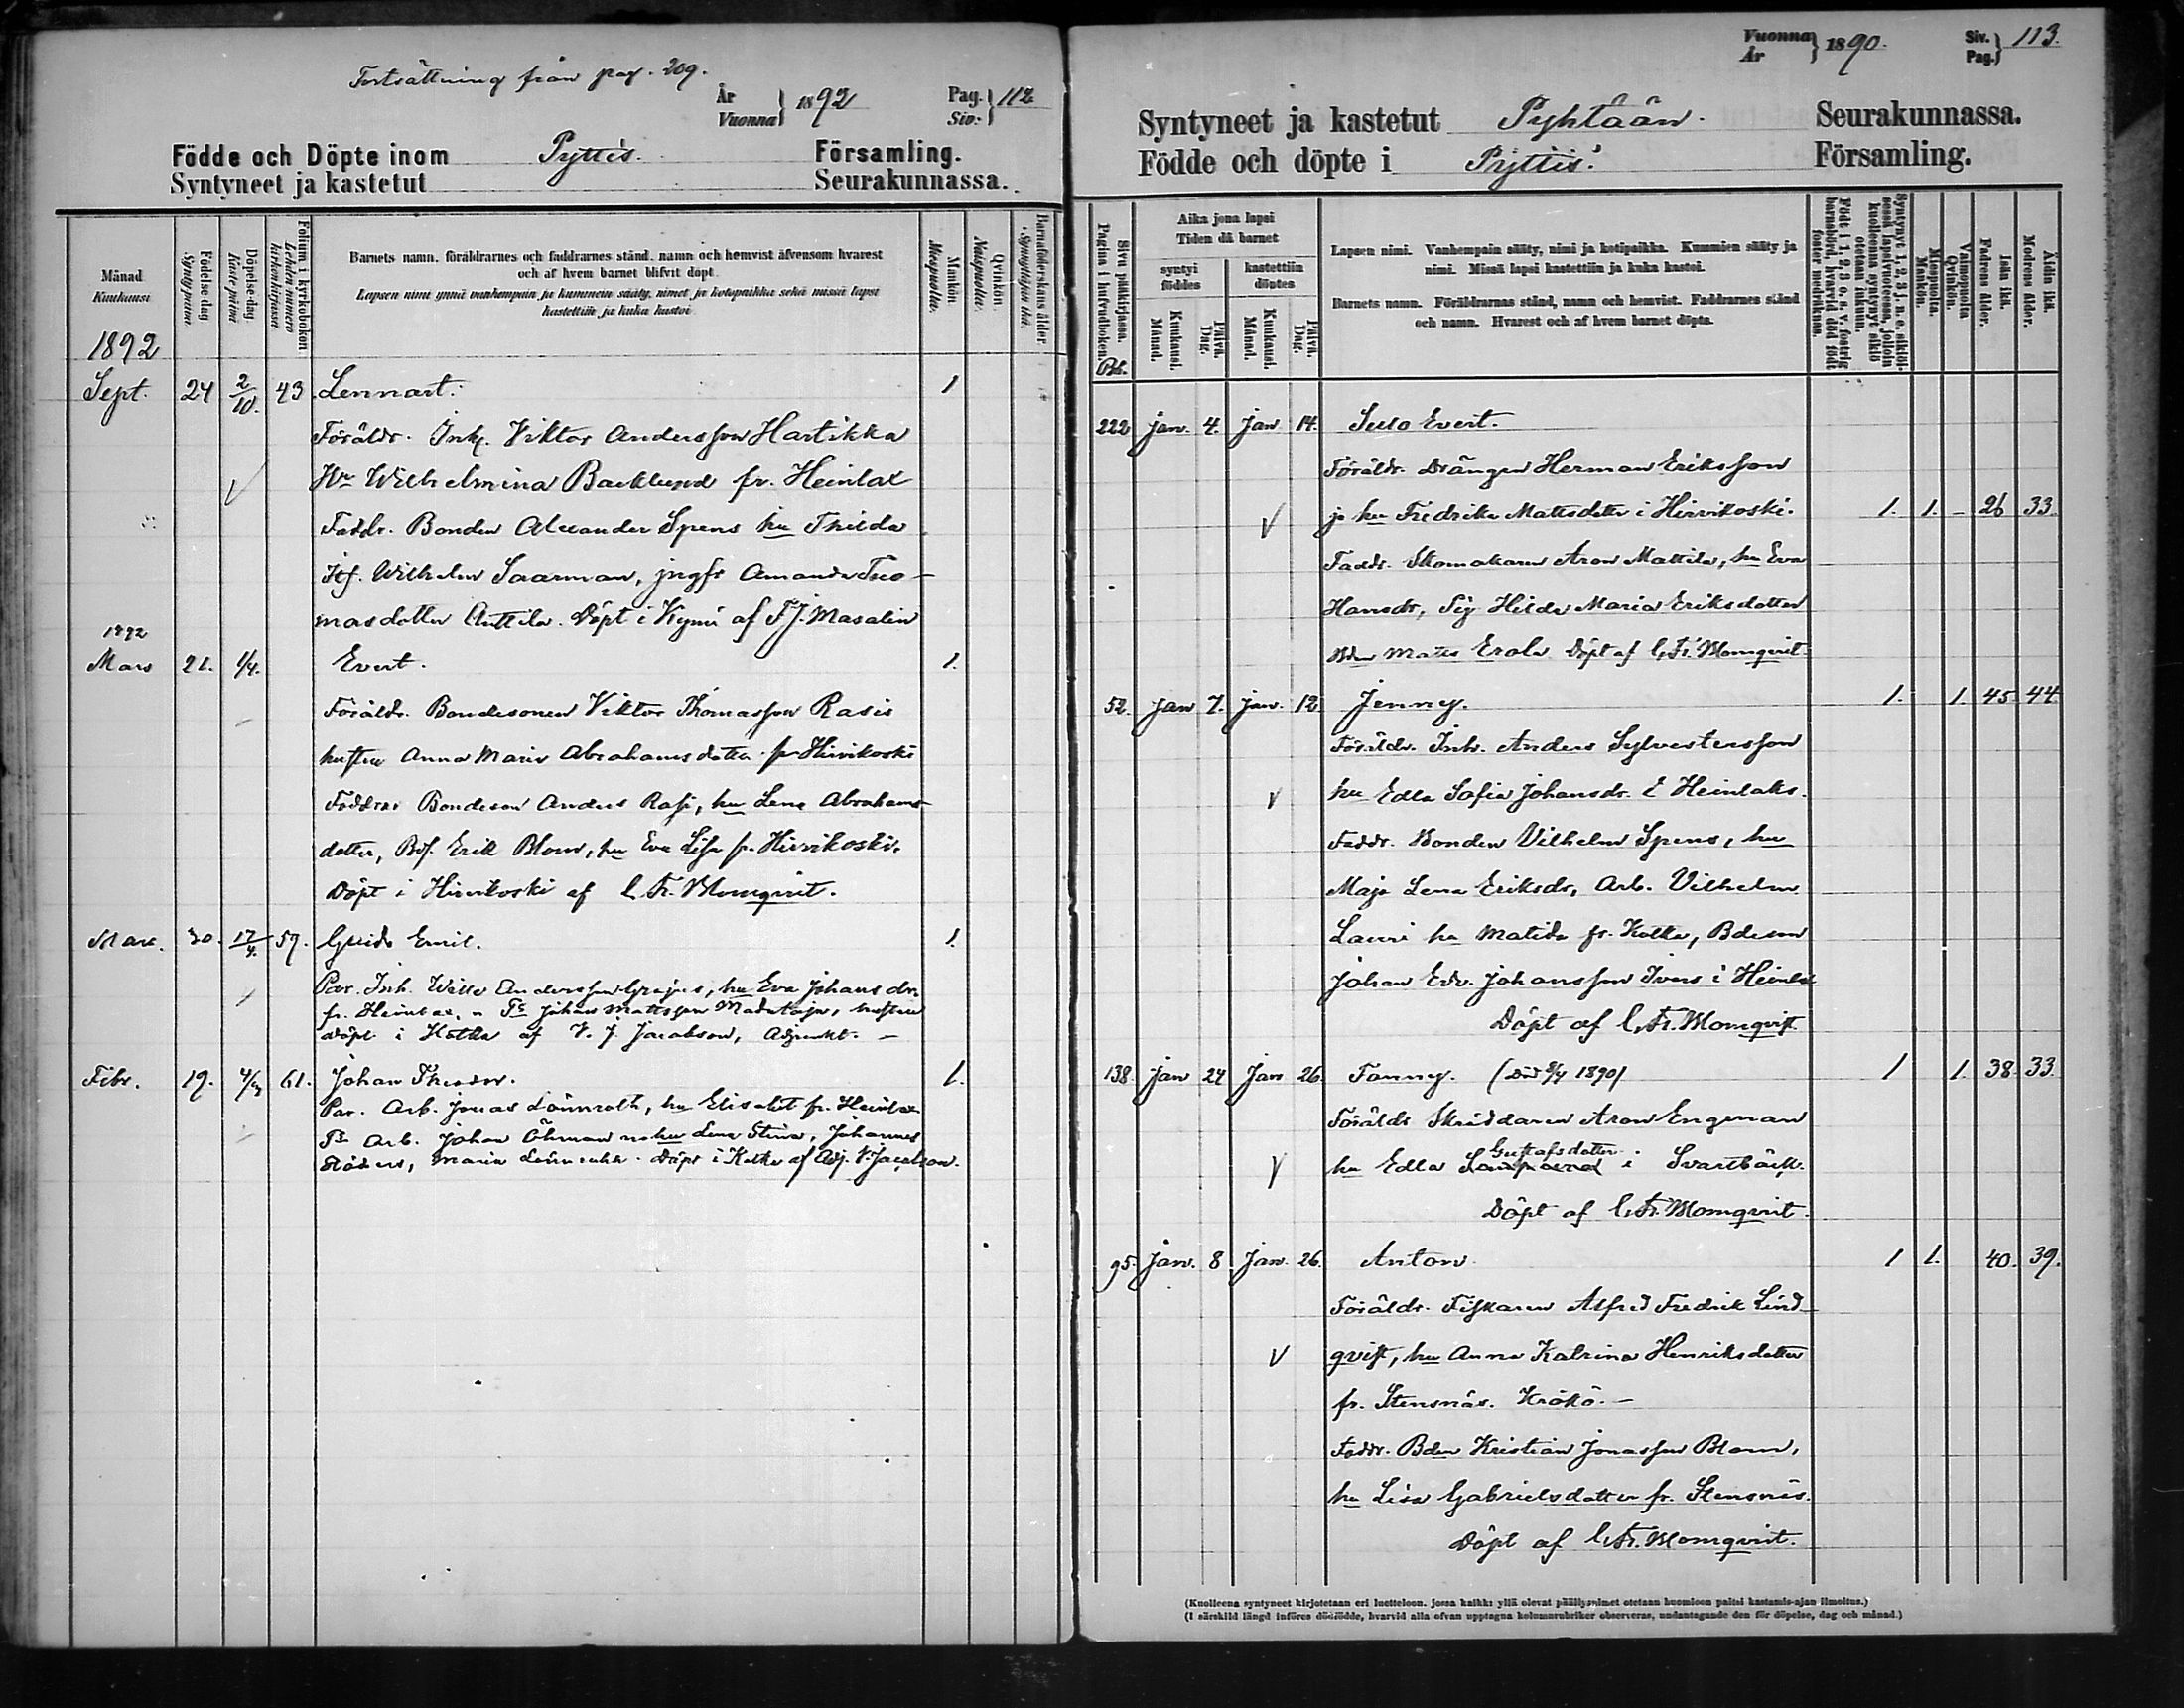 Fortsättning från pag. 209.
År
Vuonna } 1892
Pag.
Siv: } 112
Födde och Döpte inom Pyttis. Församling.
Syntyneet ja kastetut Seurakunnassa.
Månad
Kuukausi
Födelse-dag
Synty päivä
Döpelse-dag.
Kaste-päivä
Folium i kyrkoboken
Lehden numero kirkonkirjassa
Barnets namn, föräldrarnes och faddrarnes stånd, namn och hemvist äfvensom hvarest
och af hvem barnet blifvit döpt.
Lapsen nimi ynnä vanhempain ja kummein sääty, nimet ja kotopaikka sekä missä lapsi
kastettiin ja kuka kastoi
Mankön
Miespuolia.
Qvinkön.
Naispuolia.
Barnaföderskans ålder.
Synnyttäjän ikä.
1892
Sept. 24 2/10. 43 Lennart. 1
Föräldr. Inh. Viktor Andersson Hartikka
Wilhelmina Backlund fr. Heinlax
Faddr. Bonden Alexander Spens hu Thilda
Wilhelm Saarman, jngfr Amanda Tuo-
masdotter Anttila. Döpt i Kymi af F.J. Masalin
1892
Mars 21. 1/4. Evert. 1.
Föräldr. Bondesonen Viktor Thomasson Rasis
hustru Anna Maria Abrahamsdotter fr Hirvikoski
Faddrar Bondeson Anders Rasi, hu Lena Abrahams-
dotter, Erik Blom, hu Eva Lisa fr. Hirvikoski.
Döpt i Hirvikoski af C. Fr. Blomqvist.
Mars. 30. 17/4. 59. Guido Emil. 1.
Par. Inh. Wille Andersson hu Eva Johansdr.
fr. Heinlax. Johan Mattsson hustru
döpt i Kotka af V. J. Jacobson, Adjunkt. –
Febr. 19. 61. Johan Theodor. 1.
Par. Arb. Jonas Lönnroth, hu Elisabet fr. Heinlax
Arb. Johan Öhman hu Lena Stina, Johannes
Maria Döpt i Kotka af Adj. V. Jacobson.
Vuonna
År } 1890.
Siv.
Pag. } 113.
Syntyneet ja kastetut Pyhtään. Seurakunnassa.
Födde och döpte i Pyttis. Församling.
Sivu pääkirjassa.
Pagina i hufvudboken.
Aika jona lapsi
Tiden då barnet
syntyi
föddes
kastettiin
döptes
Kuukausi.
Månad.
Päivä.
Dag.
Kuukausi.
Månad.
Päivä.
Dag.
Lapsen nimi. Vanhempain sääty, nimi ja kotipaikka. Kummien sääty ja
nimi. Missä lapsi kastettiin ja kuka kastoi.
Barnets namn. Föräldrarnas stånd, namn och hemvist. Faddrarnes stånd
och namn. Hvarest och af hvem barnet döpts.
Syntynyt 1, 2, 3 j. n. e. sikiöl-
sessä lapsivuoteessa, jolloin
kuolleena syntynyt sikiö
otetaan lukuun.
Född i 1, 2, 3 o. s. v. fostrig
barnsbörd, hvarvid död född
foster medräknas.
Miespuolta.
Mankön.
Vaimopuolta
Qvinkön.
Isän ikä.
Fadrens ålder.
Äidin ikä.
Modrens ålder.
222 Jan. 4. Jan 14. Sulo Evert.
Föräldr. Drängen Herman Eriksson
ja hu Fredrika Mattsdotter i Hirvikoski. 1. 1. – 26 33.
Faddr. Skomakaren Aron Mattila, hu Eva
Hansdr, Hilda Maria Eriksdotter
Bden Matts Erola. Döpt af C. Fr. Blomqvist.
52. Jan 7. Jan. 12 Jenny. 1. 1. 45 44.
Föräldr. Inh. Anders Sylvestersson
hu Edla Sofia Johansdr. i Heinlaks.
Faddr. Bonden Vilhelm Spens, hu
Maja Lena Eriksdr, Arb. Vilhelm
Lauri hu Matilda fr. Kotka, Bdeson
Johan Edv. Johansson Ivars i Heinlax
Döpt af C. Fr. Blomqvist
138. Jan 24 Jan 26. Fanny. (Död 8/4 1890) 1 1. 38. 33.
Föräldr Skräddaren Aron Engman
Gustafsdotter
hu Edla i Svartbäck.
Döpt af C. Fr. Blomqvist.
95. Jan. 8 Jan. 26. Anton 1 1. 40. 39.
Föräldr. Fiskaren Alfred Fredrik Lind-
qvist, hu Anna Katrina Henriksdotter
fr. Stensnäs. Krökö. –
Faddr. Bden Kristian Jonasson Blom,
hu Lisa Gabrielsdotter fr. Stensnäs.
Döpt af C. Fr. Blomqvist.
(Kuolleena syntyneet kirjotetaan eri luetteloon, jossa kaikki yllä olevat päällysnimet otetaan huomioon paitsi kastamis-ajan ilmoitus.)
(I särskild längd införes dödfödde, hvarvid alla ofvan upptagna kolumnrubriker observeras, undantagande den för döpelse, dag och månad.)